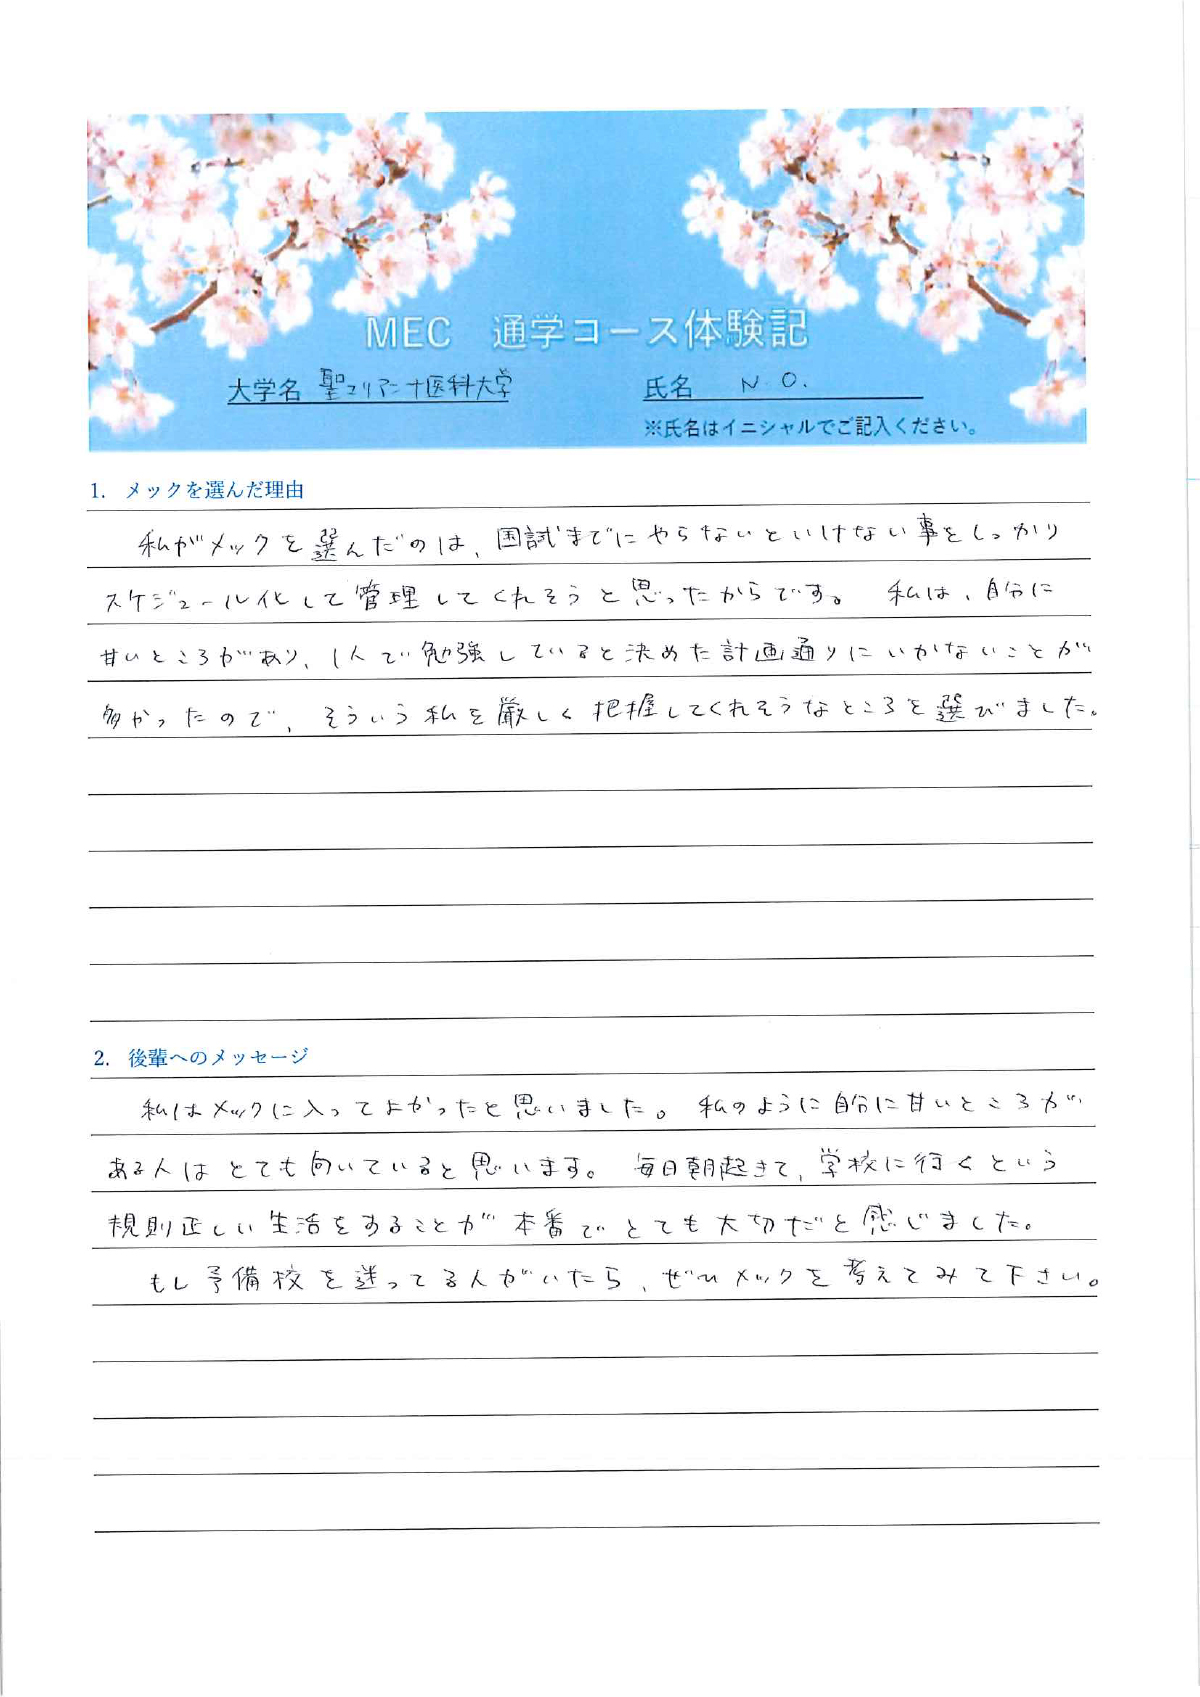 MEC 通学コース体験記
大学名 聖マリアンナ医科大学 氏名 N O.
※氏名はイニシャルでご記入ください。
1. メックを選んだ理由
私がメックを選んだのは、国試までにやらないといけない事をしっかり
スケジュール化して管理してくれそうと思ったからです。 私は、自分に
甘いところがあり、1人で勉強していると決めた計画通りにいかないことが
多かったので、そういう私を厳しく把握してくれそうなところを選びました。
2. 後輩へのメッセージ
私はメックに入ってよかったと思いました。私のように自分に甘いところが
ある人はとても向いていると思います。 毎日朝起きて、学校に行くという
規則正しい生活をすることが本番でとても大切だと感じました。
もし予備校を迷ってる人がいたら、ぜひメックを考えてみて下さい。